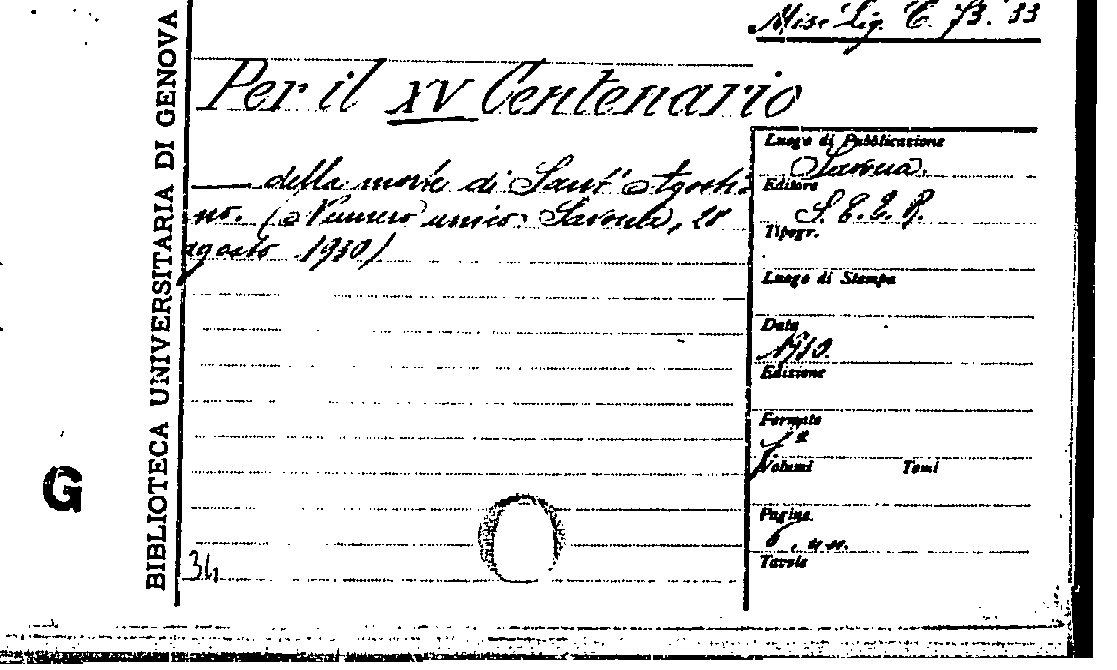 Misc. Lig. C. 73. 33
Per il XV Centenario
della morte di Sant' Agosti-
no. (Numero unico: Savona, 28
agosto 1930)
34
BIBLIOTECA UNIVERSITARIA DI GENOVA
G
Luogo di Pubblicazione
Savona.
Editore
S.E.E.R.
Tipogr.
Luogo di Stampa
Data
1930.
Edizione
Formato
Volumi Tomi
Pagine
6, nn.
Tavole